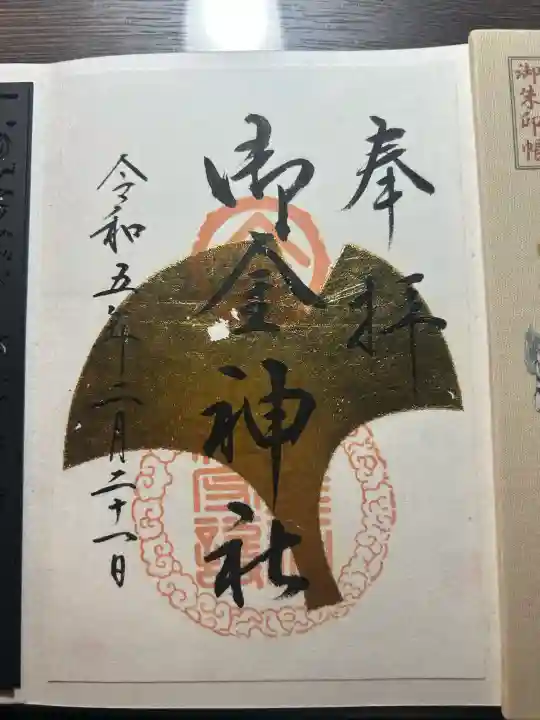 御朱印帳
奉拝
御金神社
令和五年二月二十八日